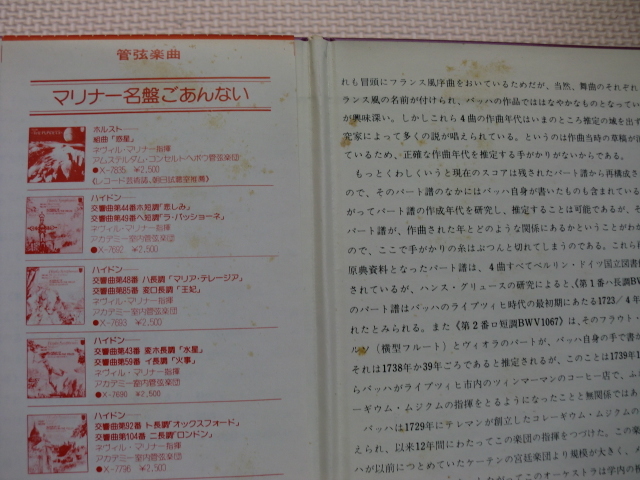 管弦楽曲
マリナー名盤ごあんない
ホルスト
組曲「惑星」
ネヴィル・マリナー指揮
アムステルダム・コンセルトヘボウ管弦楽団
●X-7835 ¥2,500
〈レコード芸術誌、朝日試聴室推薦〉
ハイドン
交響曲第44番ホ短調「悲しみ」
交響曲第49番ヘ短調「ラ・パッショーネ」
ネヴィル・マリナー指揮
アカデミー室内管弦楽団
●X-7692 ¥2,500
ハイドン
交響曲第48番 ハ長調「マリア・テレージア」
交響曲第85番 変ロ長調「王妃」
ネヴィル・マリナー指揮
アカデミー室内管弦楽団
●X-7693 ¥2,500
ハイドン
交響曲第43番 変ホ長調「水星」
交響曲第59番 イ長調「火事」
ネヴィル・マリナー指揮
アカデミー室内管弦楽団
●X-7690 ¥2,500
ハイドン
交響曲第92番 ト長調「オックスフォード」
交響曲第104番 ニ長調「ロンドン」
ネヴィル・マリナー指揮
アカデミー室内管弦楽団
●X-7796 ¥2,500
れも冒頭にフランス風序曲をおいているためだが、当然、舞曲のそれぞれ
ランス風の名前が付けられ、バッハの作品でははなやかなものとなってい
が興味深い。しかしこれら4曲の作曲年代はいまのところ推定の域を出す
究家によって多くの説が唱えられている。というのは作曲当時の草稿が
ているため、正確な作曲年代を推定する手がかりがないからである。
もっとくわしくいうと現在のスコアは残されたパート譜から再構成さ
ので、そのパート譜のなかにはバッハ自身が書いたものも含まれている
がってパート譜の作成年代を研究し、推定することは可能であるが、そ
パート譜が、作曲された年とどのような関係にあるかということがわか
ので、ここで手がかりの糸はぷつんと切れてしまうのである。これら
原典資料となったパート譜は、4曲すべてベルリン・ドイツ国立図書
されているが、ハンス・グリュースの研究によると、《第1番ハ長調BW
のパート譜はバッハのライプツィヒ時代の最初期にあたる1723／4年
れたとみられる。また《第2番ロ短調BWV1067》は、そのフラウト・
ルソ（横型フルート）とヴィオラのパートが、バッハ自身の手で書か
それは1738年か39年ごろであると推定されるが、このことは1739年1
らバッハがライプツィヒ市内のツィンマーマンのコーヒー店で、ム
ーギウム・ムジクムの指揮をとるようになったことと無関係ではあ
バッハは1729年にテレマンが創立したコレーギウム・ムジクムの
えられ、以来12年間にわたってこの楽団の指揮をつづけた。この楽
ハが以前につとめていたケーテンの宮廷楽団より規模が大きく、